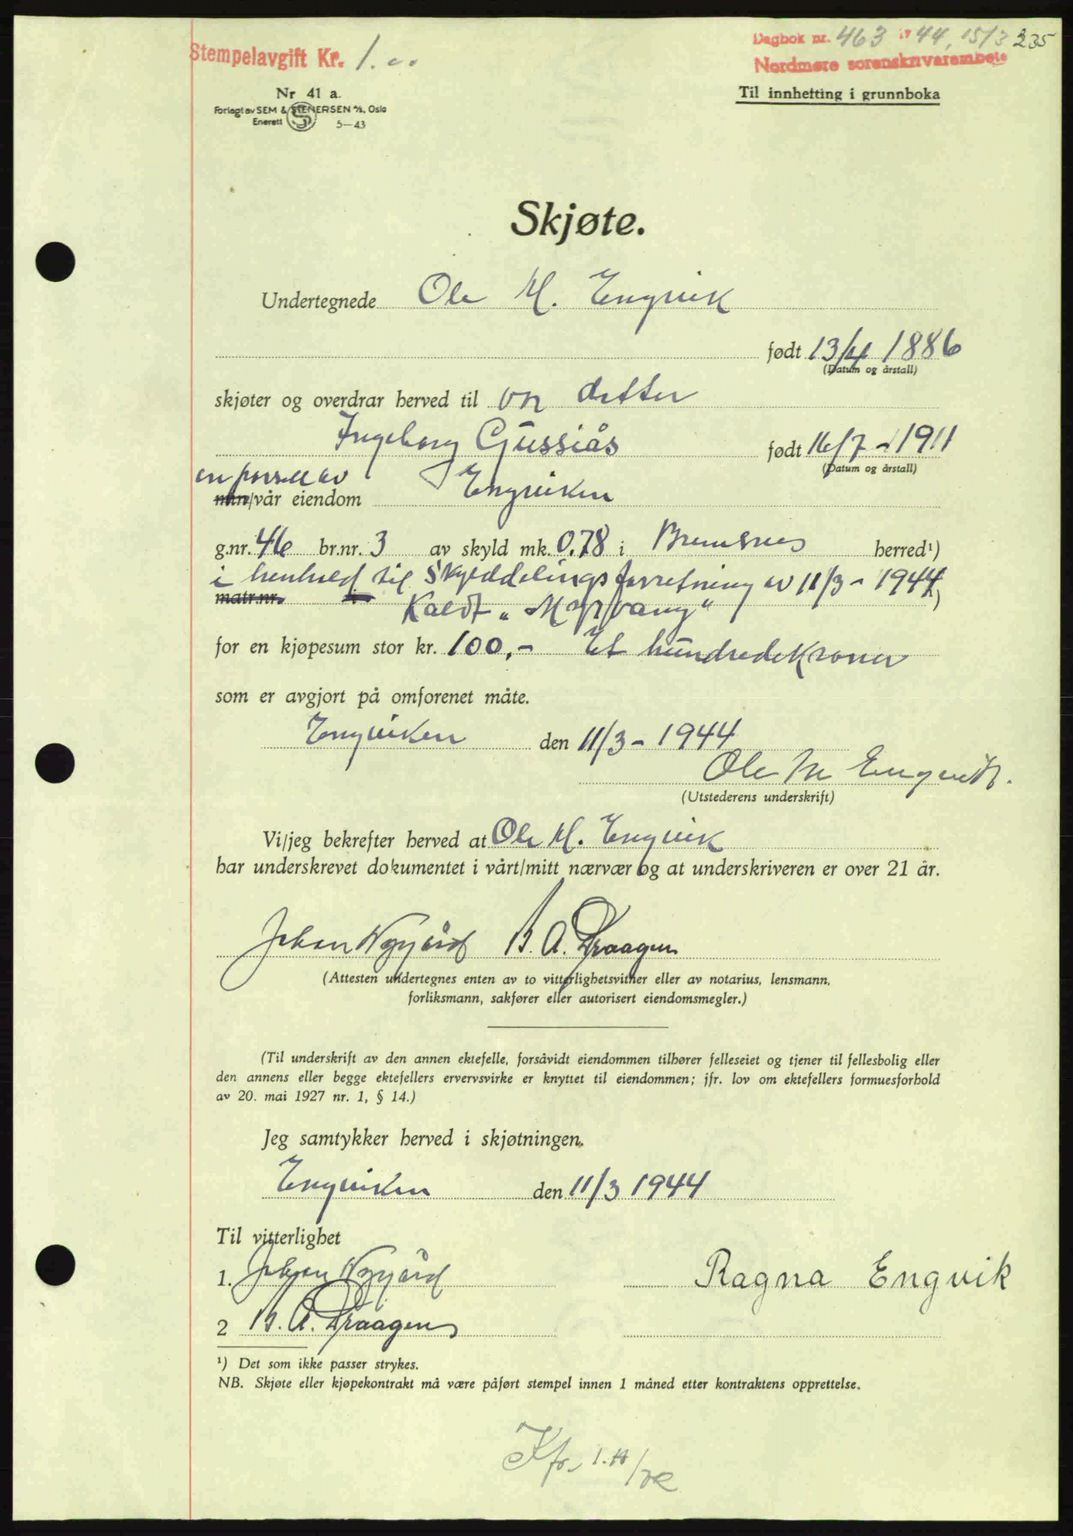 Stempelavgift Kr. 1.00
Dagbok nr. 463 1944, 15/3 235
Nordmøre sorenskriverembete
Nr 41 a.
Forlagt av SEM & STENERSEN A/S, Oslo
Enerett 5—43
Til innhefting i grunnboka
Skjøte.
Undertegnede Ole M. Engvik
født 13/4 1886
(Datum og årstall)
skjøter og overdrar herved til vor datter
Ingeborg Gussiås født 16/7 - 1911
(Datum og årstall)
en parsell av
min/vår eiendom Engviken
g.nr. 46 br.nr. 3 av skyld mk. 0.78 i Bremsnes herred¹)
i henhold til Skylddelingsforretning av 11/3 - 1944
matr.nr. i )
Kaldt „Myrvang"
for en kjøpesum stor kr. 100,- Et hundredekroner
som er avgjort på omforenet måte.
Engviken den 11/3 - 1944
Ole M Engvik.
(Utstederens underskrift)
Vi/jeg bekrefter herved at Ole M. Engvik
har underskrevet dokumentet i vårt/mitt nærvær og at underskriveren er over 21 år.
Johan Nygård B. A. Draagen
(Attesten undertegnes enten av to vitterlighetsvitner eller av notarius, lensmann,
forliksmann, sakfører eller autorisert eiendomsmegler.)
(Til underskrift av den annen ektefelle, forsåvidt eiendommen tilhører felleseiet og tjener til fellesbolig eller
den annens eller begge ektefellers ervervsvirke er knyttet til eiendommen; jfr. lov om ektefellers formuesforhold
av 20. mai 1927 nr. 1, § 14.)
Jeg samtykker herved i skjøtningen.
Engviken den 11/3 1944
Til vitterlighet
1. Johan Nygård Ragna Engvik
2 B. A. Draagen
¹) Det som ikke passer strykes.
NB. Skjøte eller kjøpekontrakt må være påført stempel innen 1 måned etter kontraktens opprettelse.
Kfr.